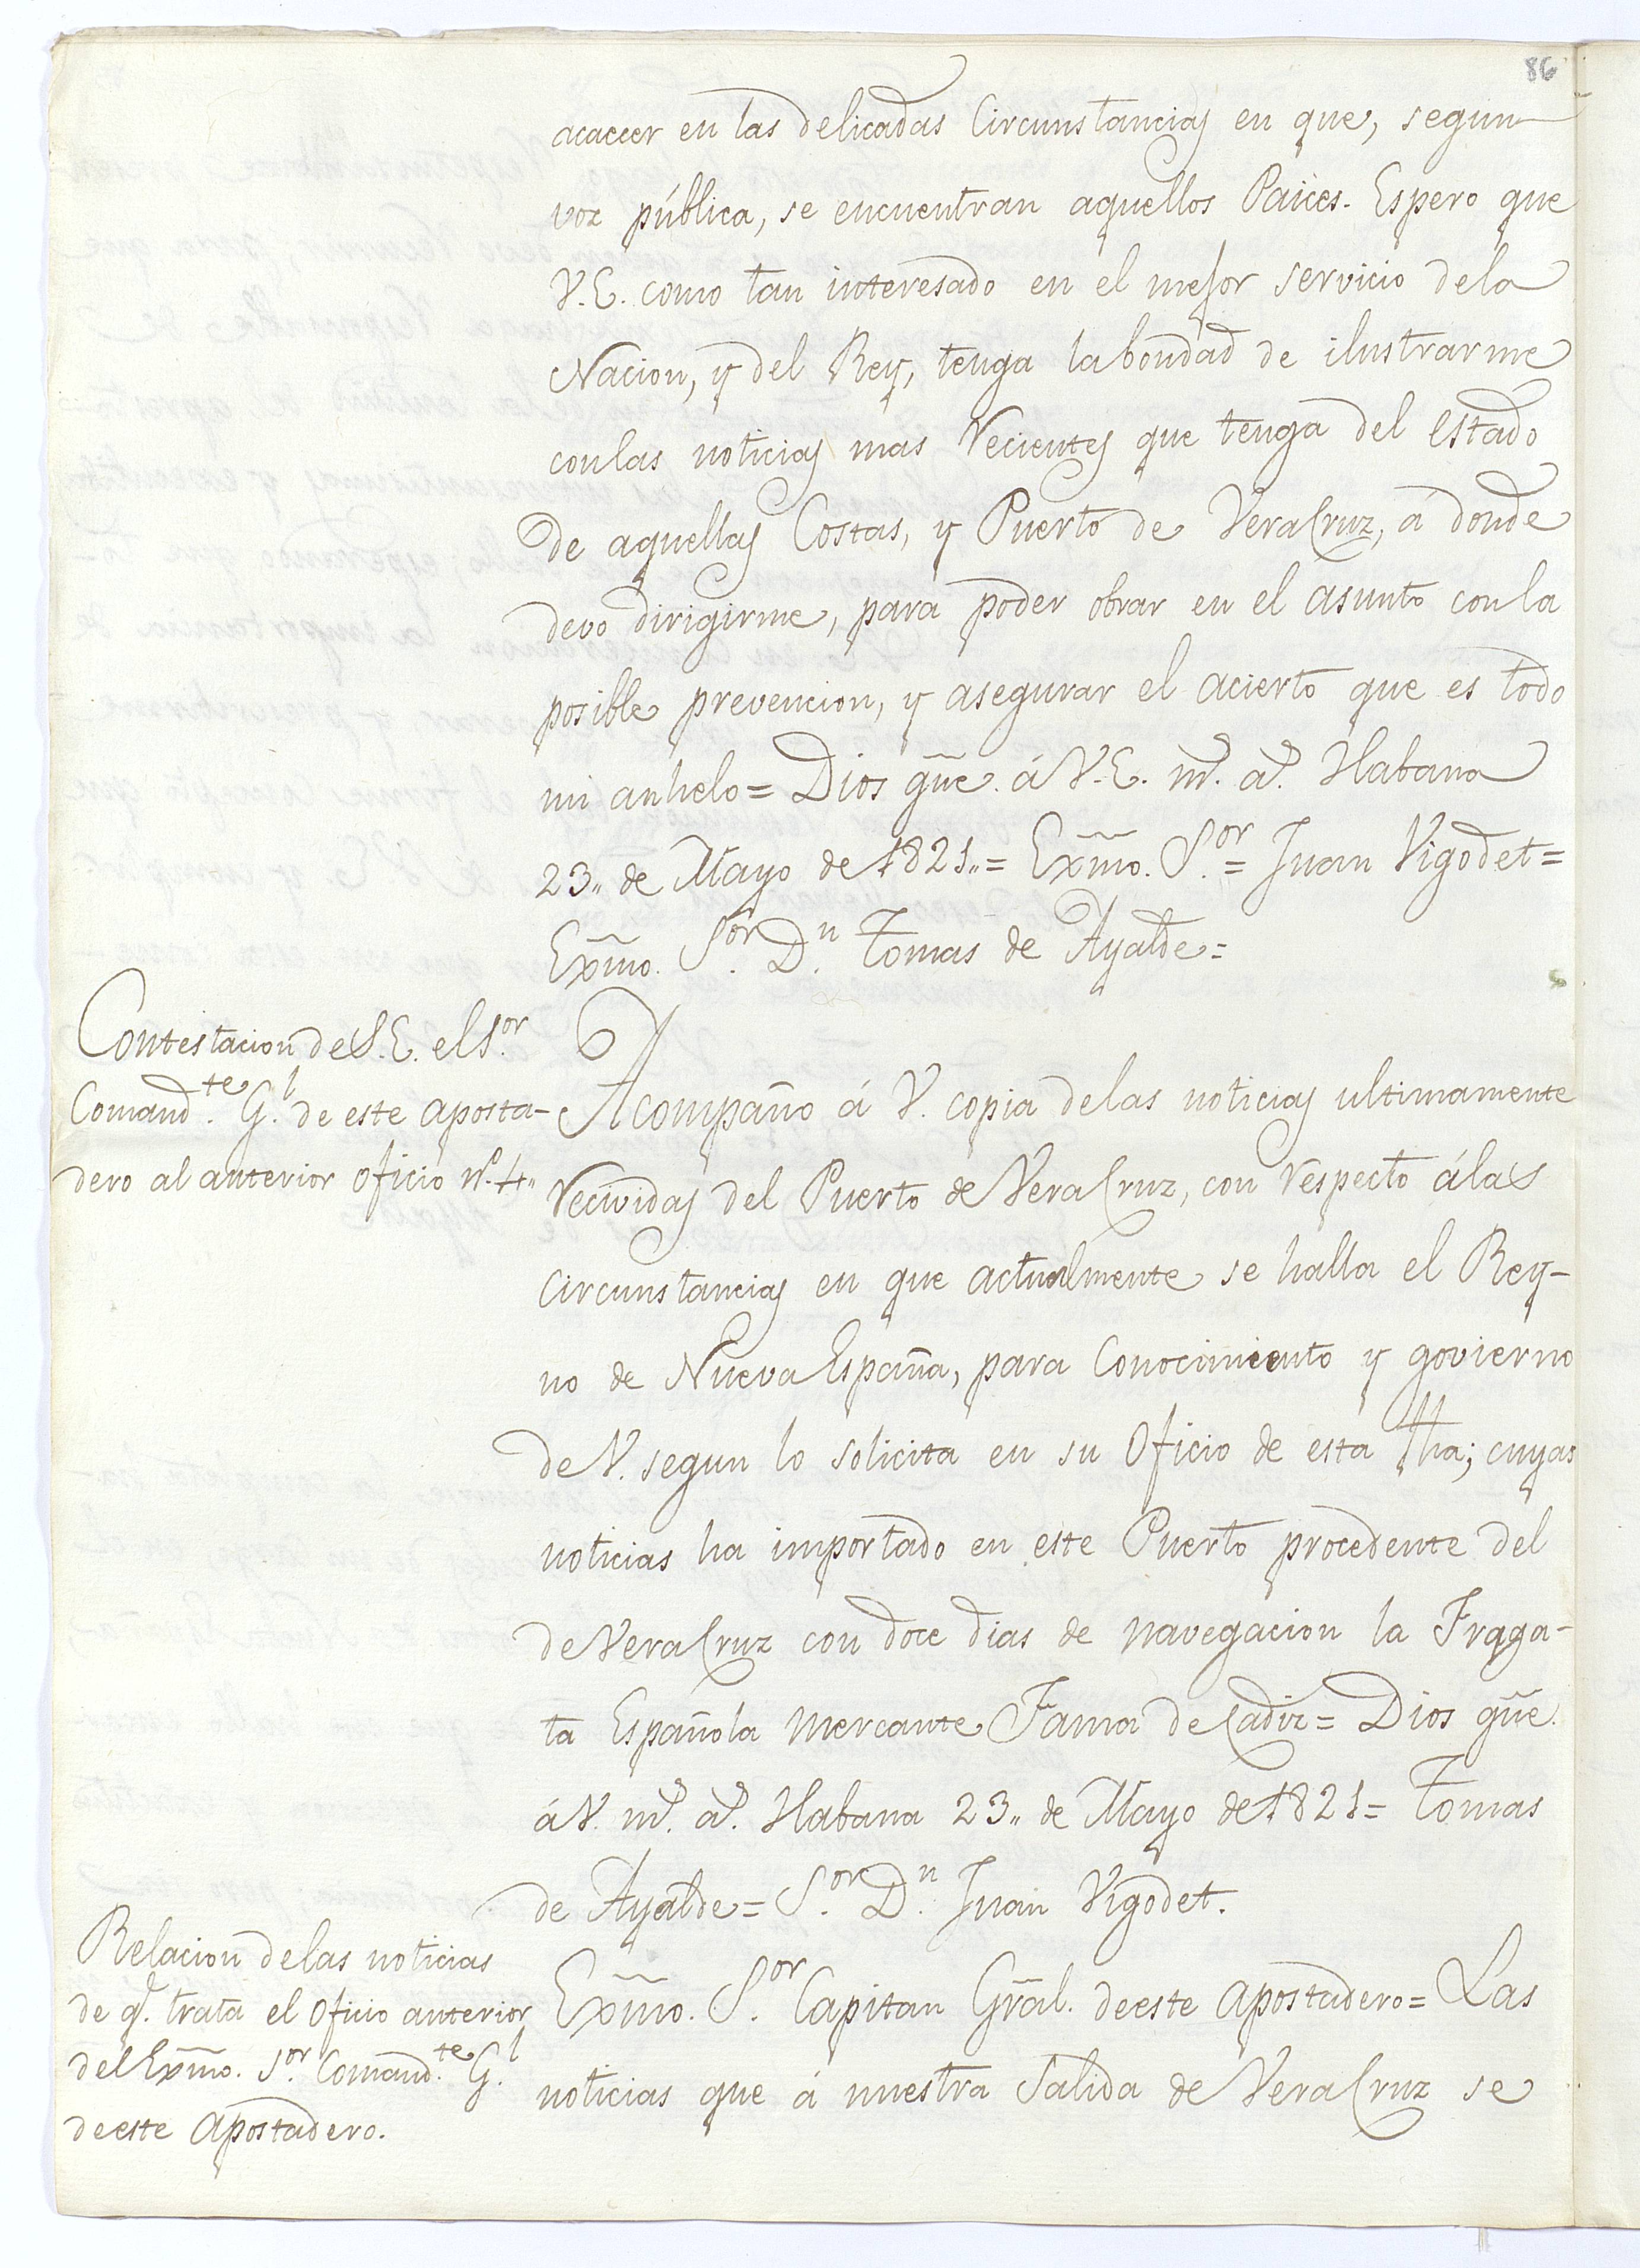 86
acaecer en las delicadas Circunstancias en que, segun
voz pública, se encuentran aquellos Paices. Espero que
V.E. como tan interesado en el mejor servicio dela
Nacion, y del Rey, tenga labondad de ilustrarme
conlas noticias mas recientes que tenga del estado
de aquellas Costas, y Puerto de VeraCruz, á donde
devo dirigirme, para poder obrar en el asunto conla
posible prevencion, y asegurar el acierto que es todo
mi anhelo = Dios gũe. á V.E. m.s a.s Habana
23,, de Mayo de 1821,, = Exm̃o. S.or = Juan Vigodet =
Exm̃o. S.or D.n Tomas de Ayalde =
Contestacion de S.E. el S.or
Comand.te G.l de este aposta-
dero al anterior oficio n.o 4,,
Acompaño á V. copia delas noticias ultimamente
recividas del Puerto de VeraCruz, con respecto álas
circunstancias en que actualmente se halla el Rey-
no de Nueva España, para Conocimiento y govierno
de V. segun lo solicita en su Oficio de esta fha; cuyas
noticias ha importado en este Puerto procedente del
de VeraCruz con doce dias de navegacion la Fraga-
ta Española mercante Fama de Cadiz = Dios gũe.
á V. m.s a.s Habana 23,, de Mayo de 1821 = Tomas
de Ayalde = S.or D.n Juan Vigodet.
Relacion delas noticias
de q.e trata el Oficio anterior
del Exm̃o. S.or Comand.te G.l
deeste Apostadero.
Exm̃o. S.or Capitan Gr̃al. deeste Apostadero = Las
noticias que á nuestra Salida de VeraCruz se